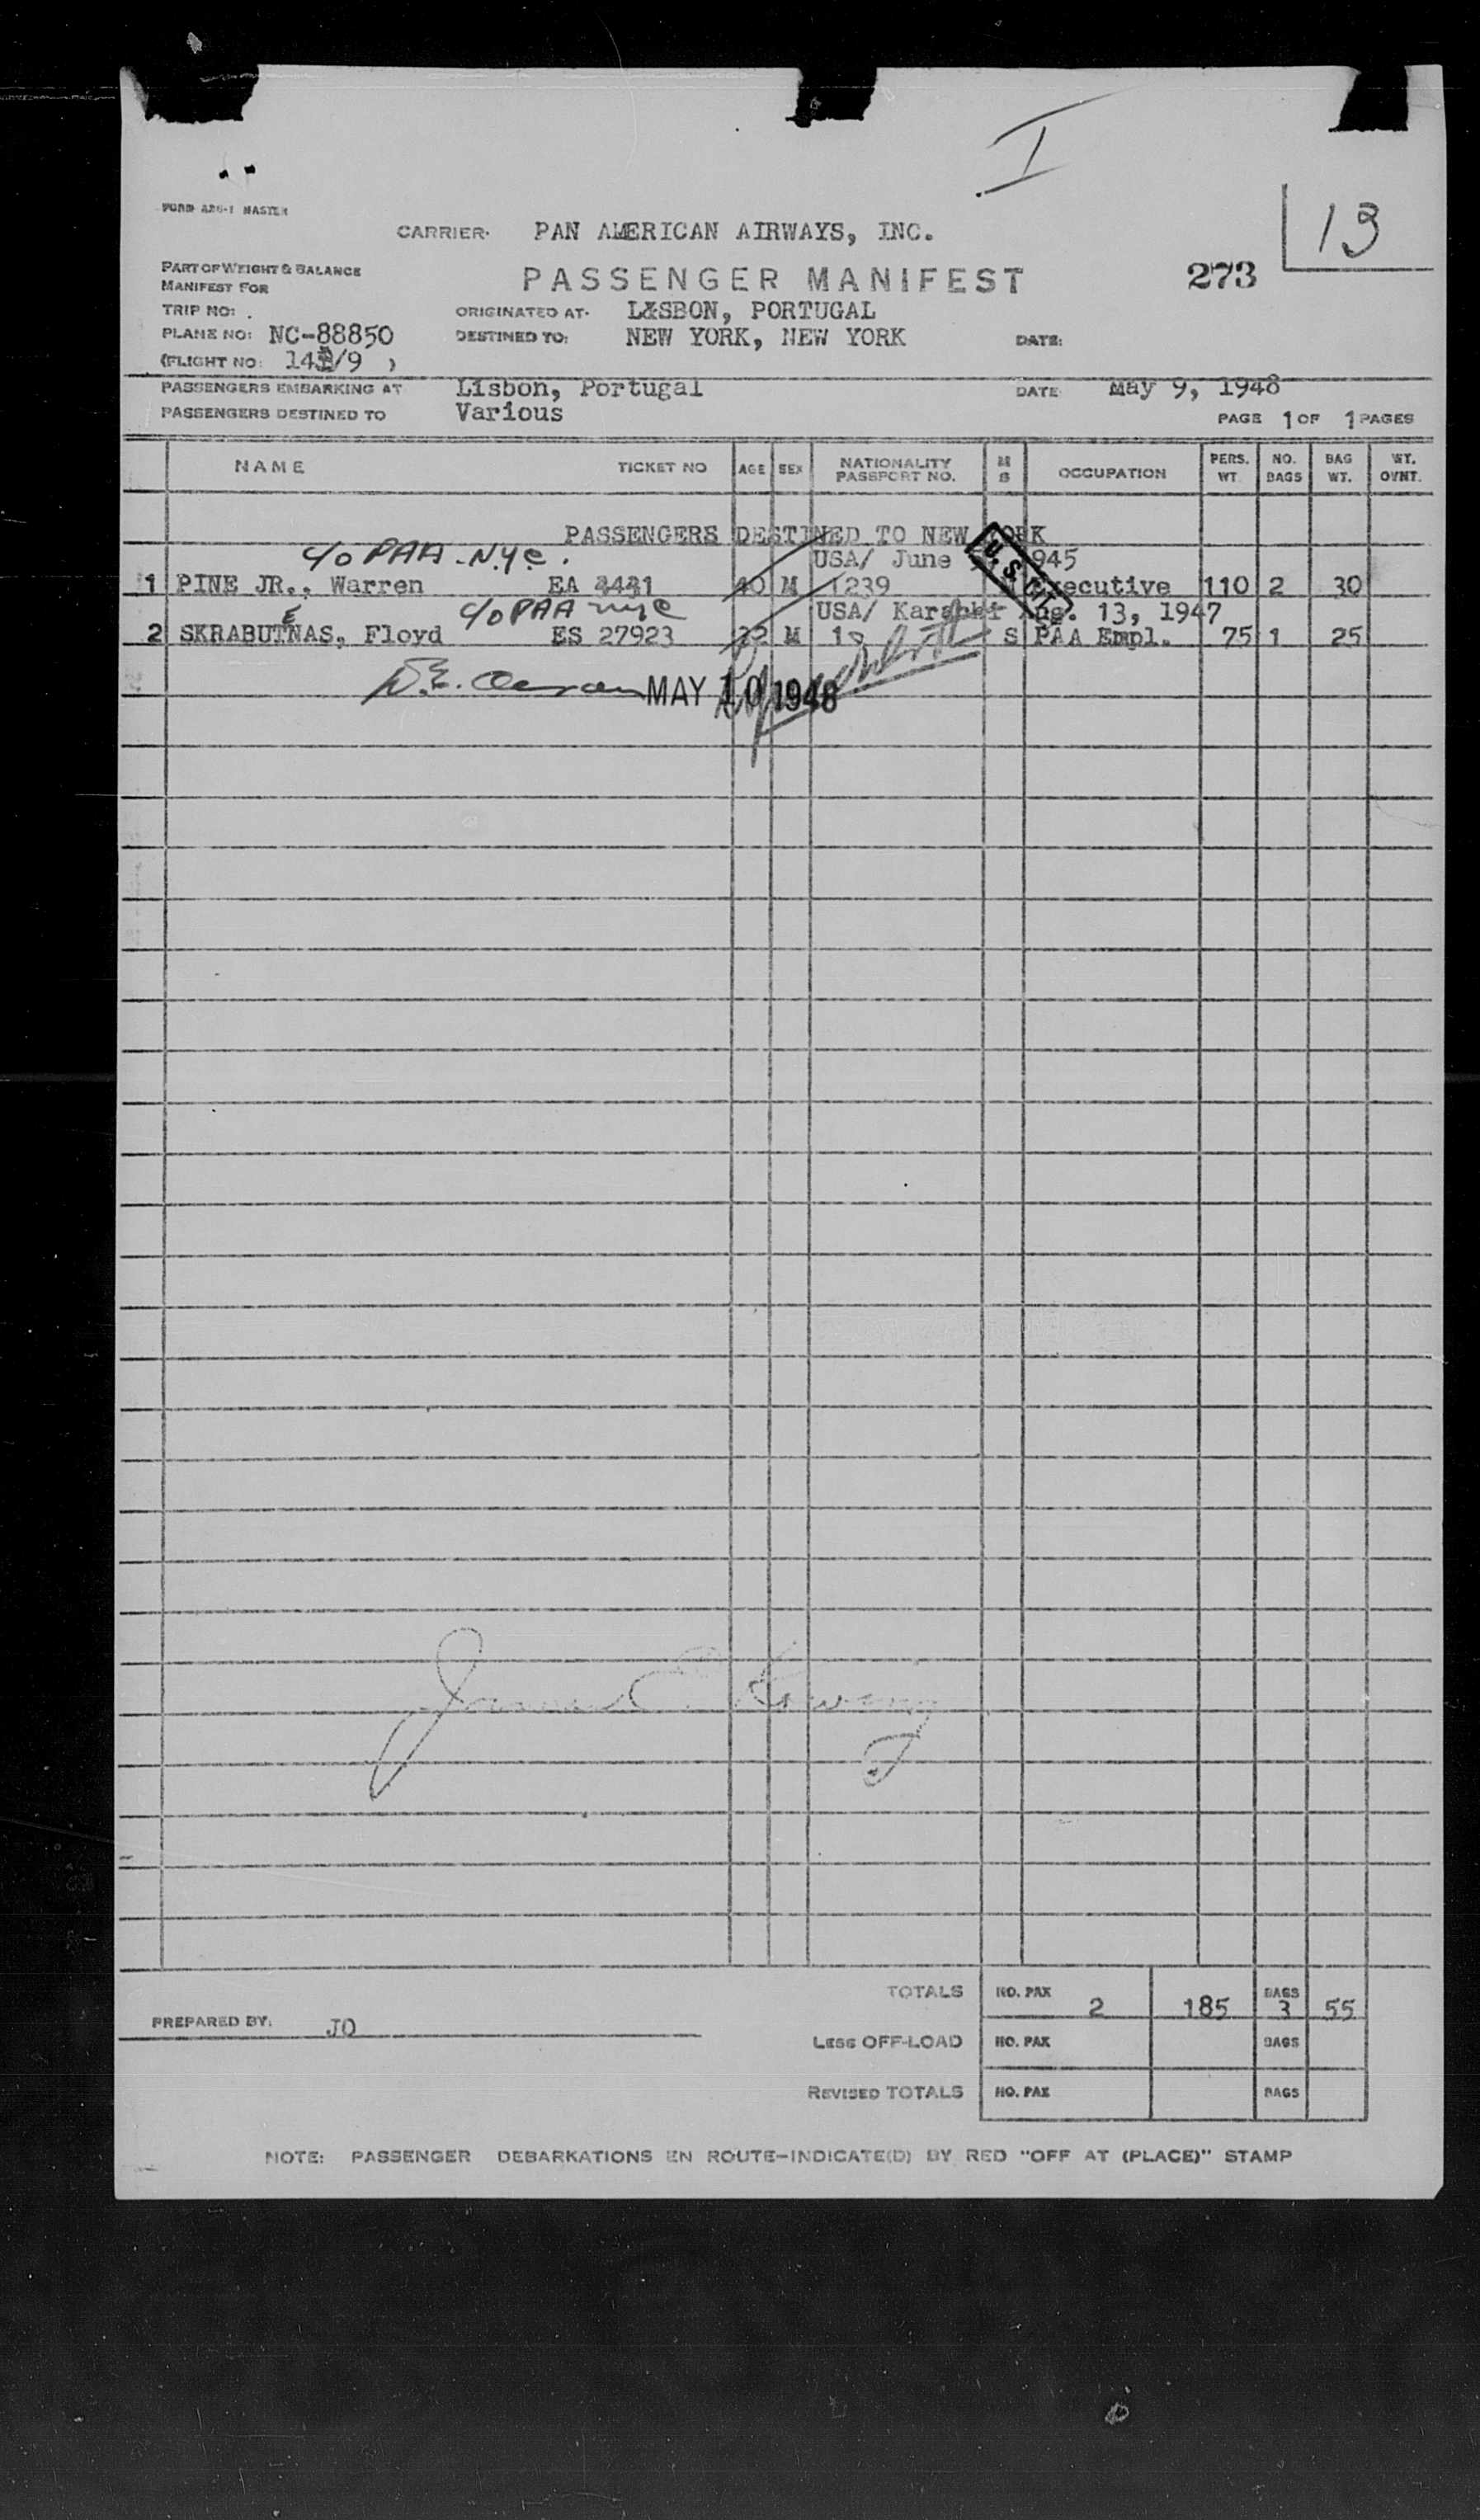 I
13
FORM ABG-1 MASTER
CARRIER: PAN AMERICAN AIRWAYS, INC.
PART OF WEIGHT & BALANCE
MANIFEST FOR
PASSENGER MANIFEST
273
TRIP NO:
ORIGINATED AT: L&SBON, PORTUGAL
PLANE NO: NC-88850
DESTINED TO: NEW YORK, NEW YORK
DATE:
(FLIGHT NO: /9 )
PASSENGERS EMBARKING AT Lisbon, Portugal
DATE May 9, 1948
PASSENGERS DESTINED TO Various
PAGE 1 OF 1 PAGES
NAME TICKET NO AGE SEX NATIONALITY PASSPORT NO. M S OCCUPATION PERS. WT. NO. BAGS BAG WT. WT. OVNT.
PASSENGERS DESTINED TO NEW YORK
c/o PAA - N.Y.C. USA/ June 1945
1 PINE JR., Warren EA 3431 40 M 1239 M Executive 110 2 30
U.S.
E c/o PAA NYC USA/ Karachi Aug. 13, 1947
2 SKRABUTNAS, Floyd ES 27923 22 M S PAA Empl. 75 1 25
MAY 10 1948
TOTALS NO. PAX 2 185 BAGS 3 55
PREPARED BY: JO
LESS OFF-LOAD NO. PAX BAGS
REVISED TOTALS NO. PAX BAGS
NOTE: PASSENGER DEBARKATIONS EN ROUTE-INDICATE(D) BY RED "OFF AT (PLACE)" STAMP